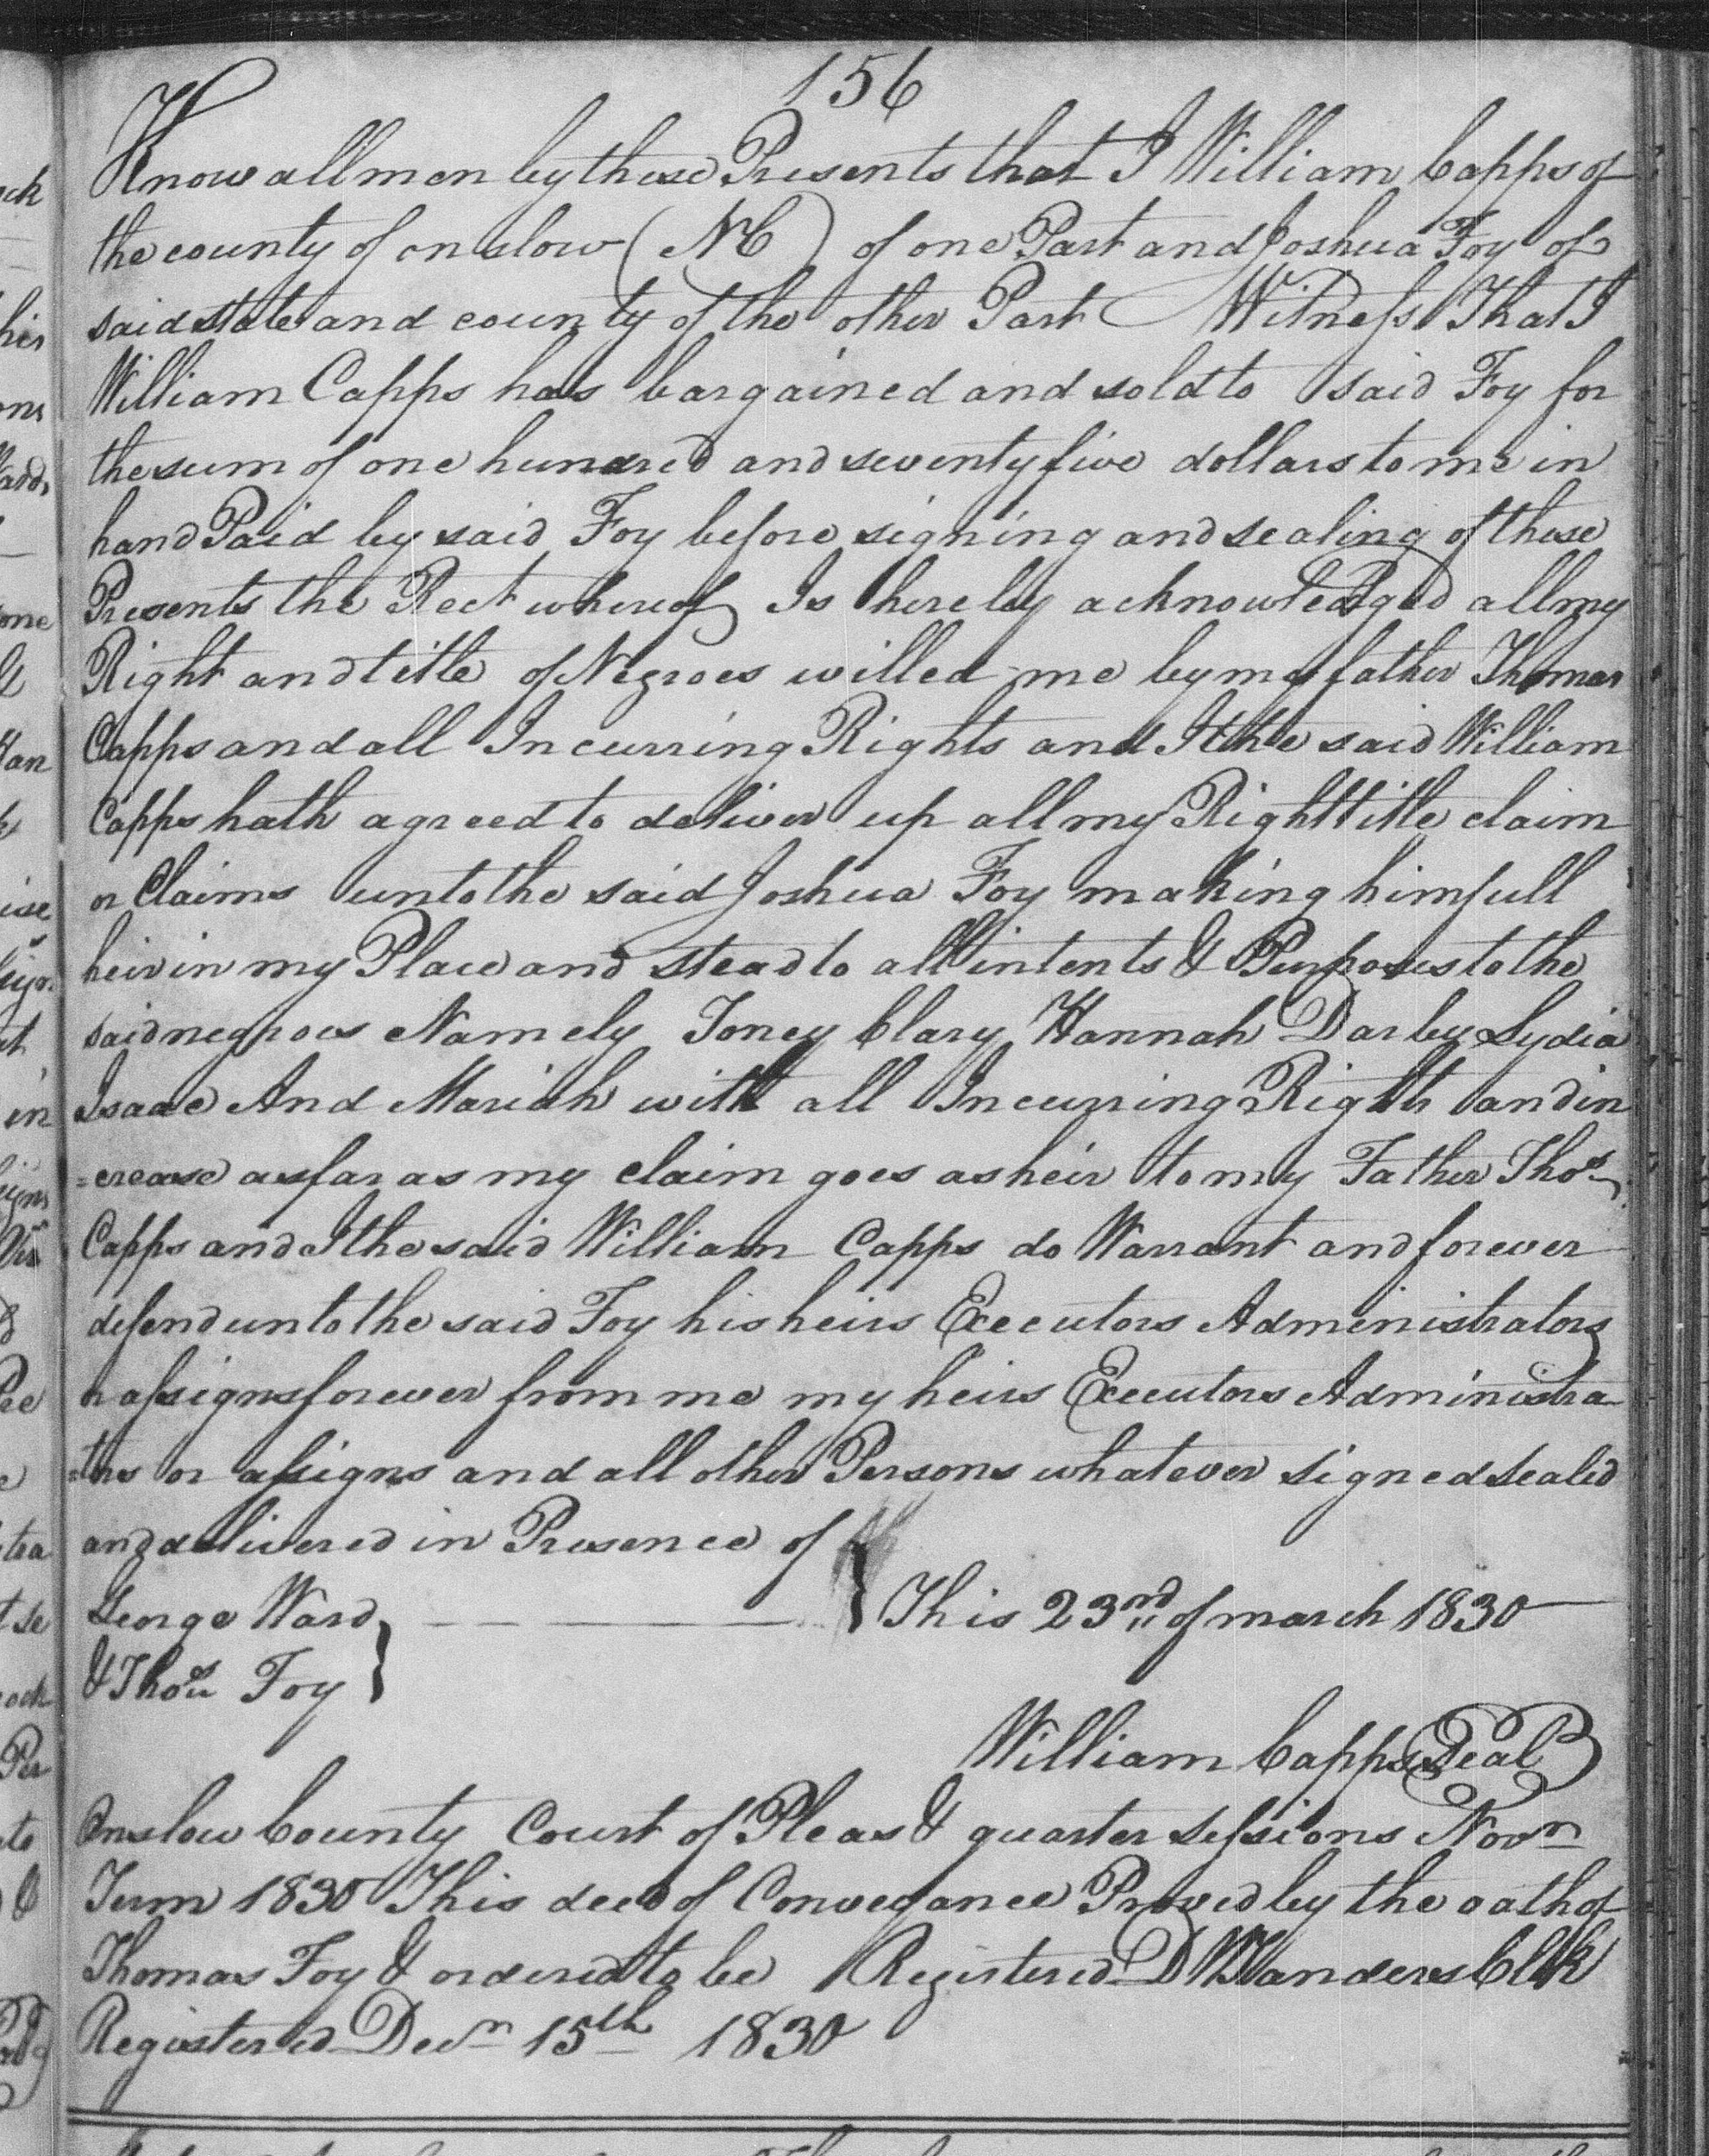 156
Know all men by these Presents that I William Capps of
the county of onslow (NC) of one Part and Joshua Foy of
said state and county of the other Part Witness That I
William Capps has bargained and sold to said Foy for
the sum of one hundred and seventy five dollars to me in
hand Paid by said Foy before signing and sealing of these
Presents the Rect whereof Is hereby acknowledged all my
Right and title of Negroes willed me by my father Thomas
Capps and all Incurring Rights and I the said William
Capps hath agreed to deliver up all my Right title claim
or Claims unto the said Joshua Foy making him full
heir in my Place and stead to all intents & Purposes to the
said negroes Namely Toney Clary Hannah Darby Lydia
Isaac And Mariah with all Incurring Rights and in
=crease as far as my claim goes as heir to my Father Thos
Capps and I the said William Capps do Warrant and forever
defend unto the said Foy his heirs Executors Administrators
or assigns forever from me my heirs Executors Administra
=tors or assigns and all other Persons whatever signed sealed
and delivered in Presence of
George Ward } This 23rd of march 1830
& Thos Foy }
William Capps Seal
Onslow County Court of Pleas & quarter sessions Novr
Term 1830 This deed of Conveyance Proved by the oath of
Thomas Foy & ordered to be Registered D W Sanders Clk
Registered Decr 15th 1830